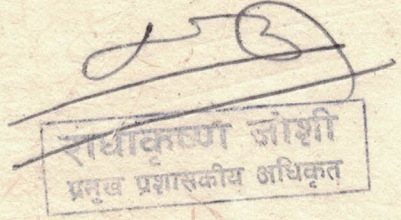 राधाकृष्ण जोशी
प्रमुख प्रशासकीय अधिकृत